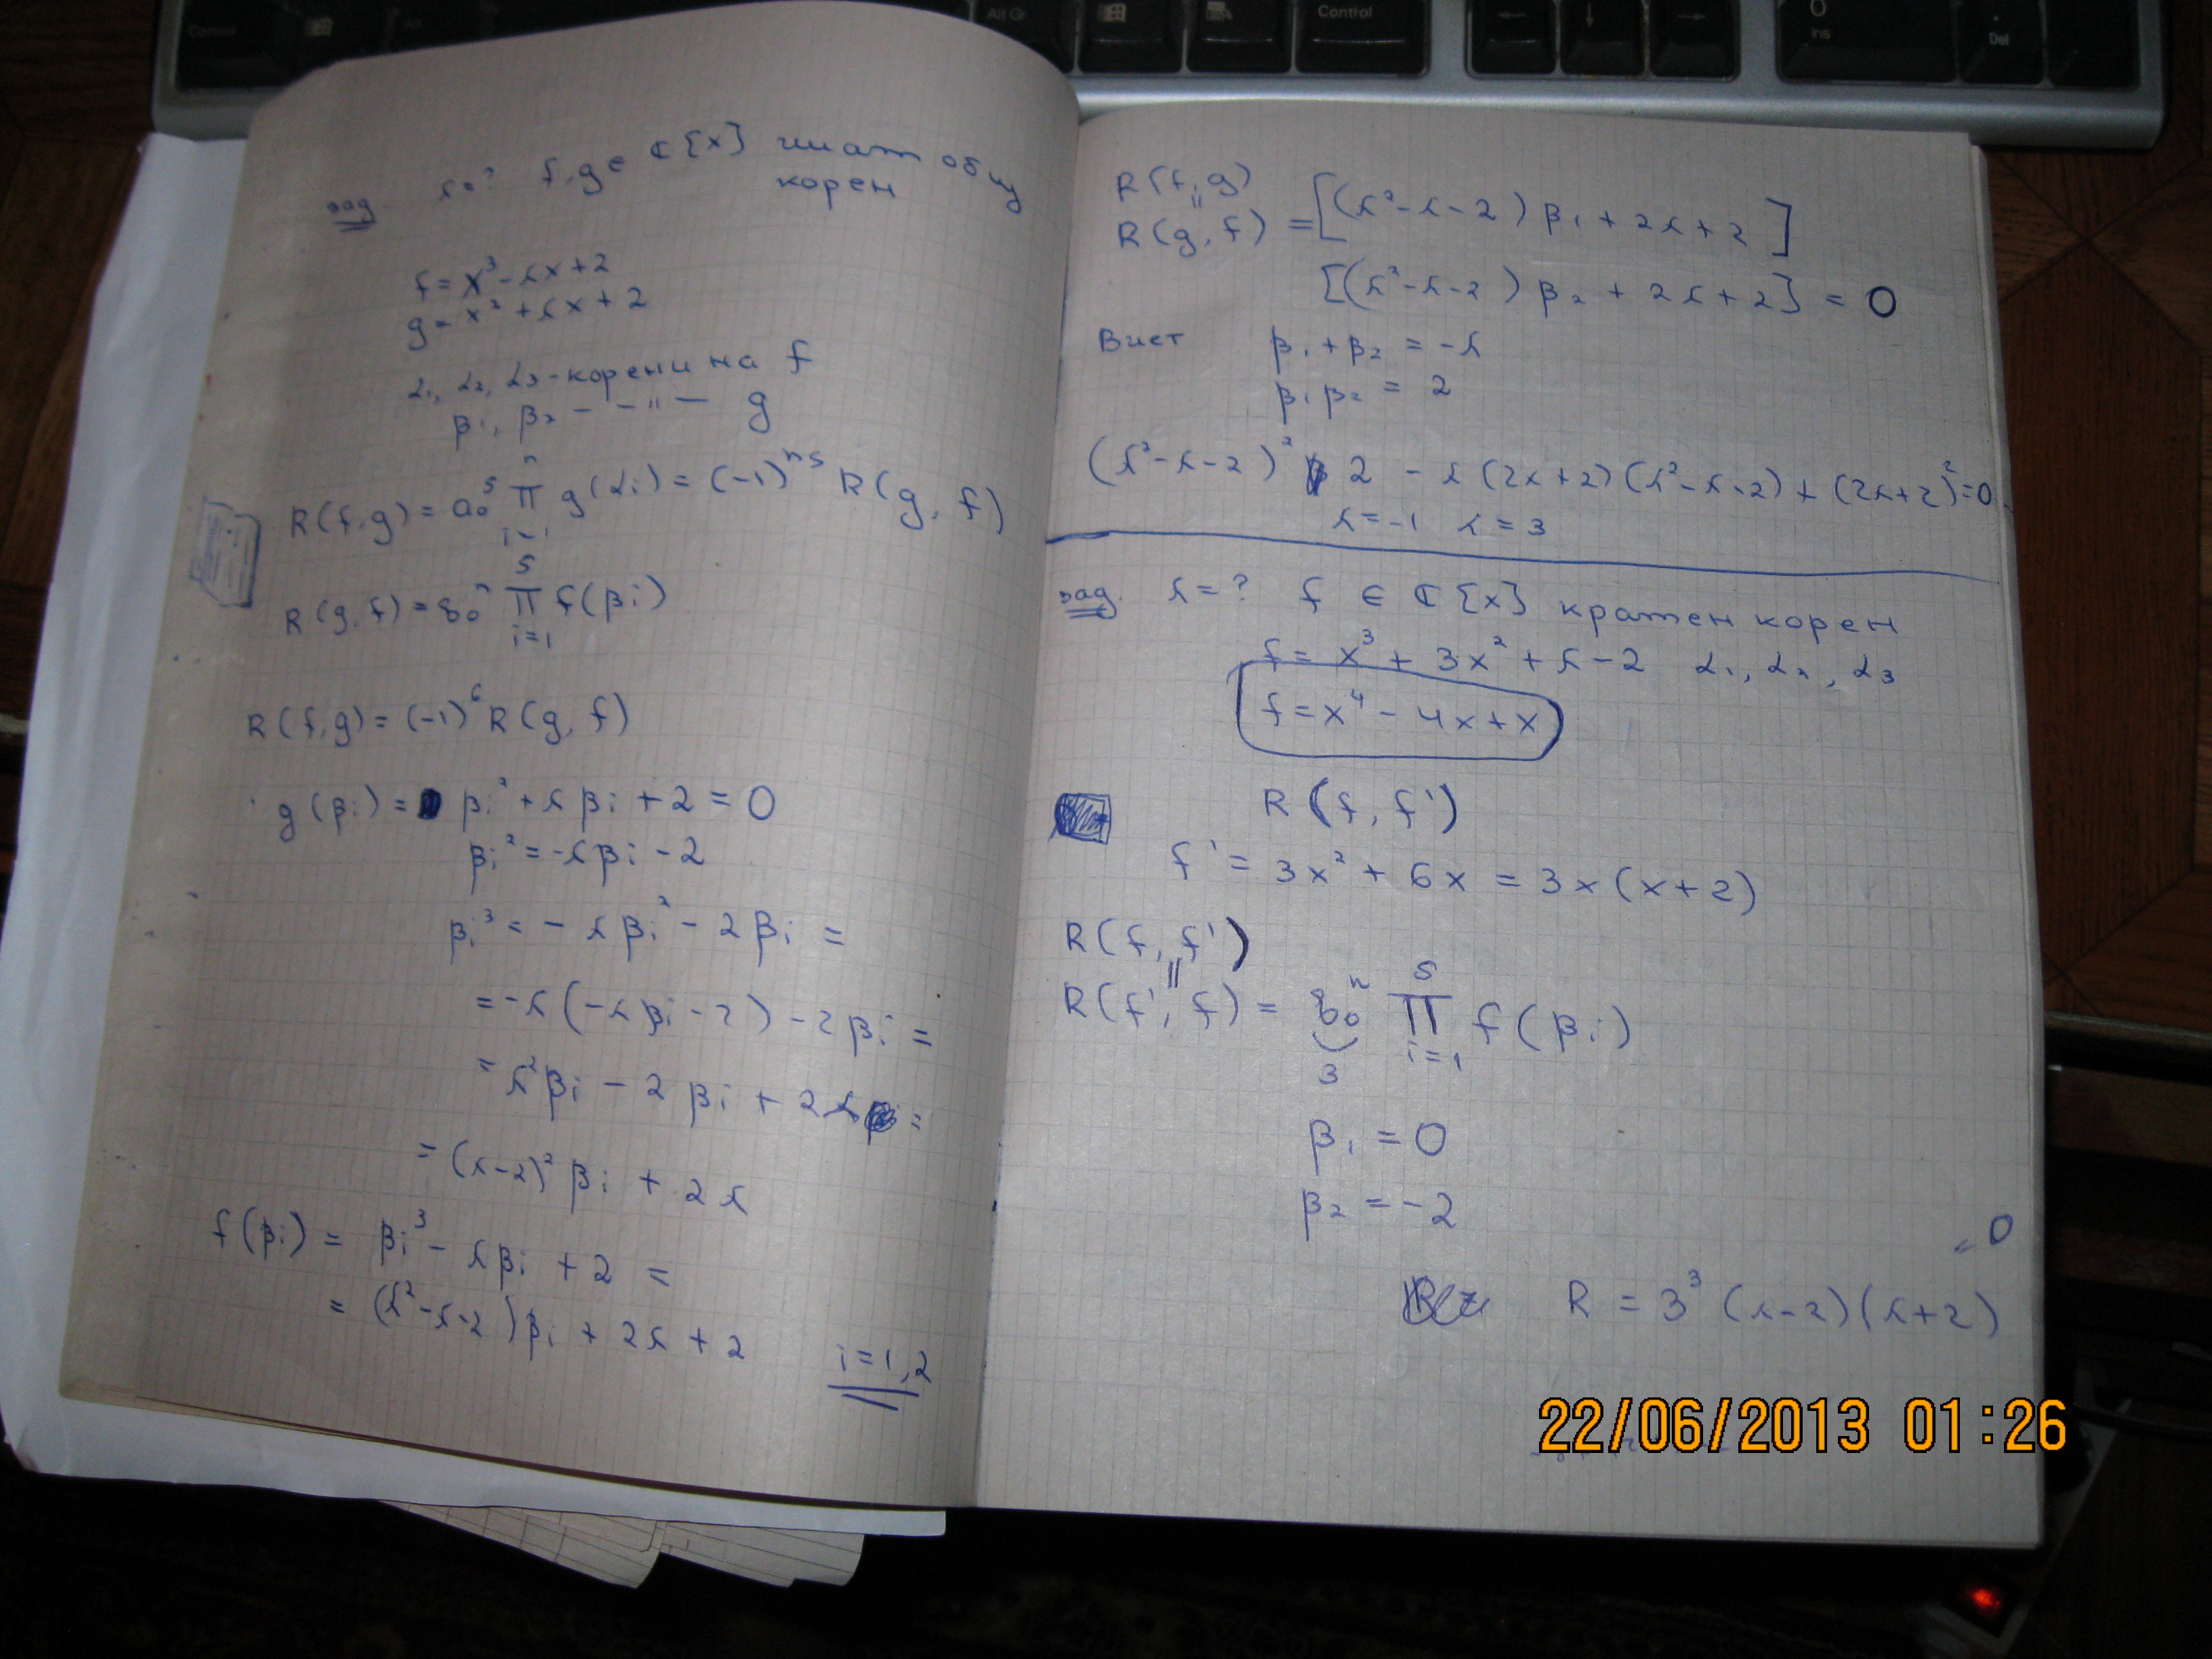 Control
Alt Gr
Control
0
Ins
.
Del
зад. λ=? f, g ∈ ℂ[x] имат общ
корен
f = x³ - λx + 2
g = x² + λx + 2
α₁, α₂, α₃ - корени на f
β₁, β₂ - - " - g
R(f, g) = a₀ˢ ∏ⁿᵢ₌₁ g(αᵢ) = (-1)ⁿˢ R(g, f)
R(g, f) = b₀ⁿ ∏ˢᵢ₌₁ f(βᵢ)
R(f, g) = (-1)⁶ R(g, f)
g(βᵢ) = βᵢ² + λβᵢ + 2 = 0
βᵢ² = -λβᵢ - 2
βᵢ³ = -λβᵢ² - 2βᵢ =
= -λ(-λβᵢ - 2) - 2βᵢ =
= λ²βᵢ - 2βᵢ + 2λ =
= (λ-2)² βᵢ + 2λ
f(βᵢ) = βᵢ³ - λβᵢ + 2 =
= (λ²-λ-2)βᵢ + 2λ + 2
i=1,2
R(f, g)
"
R(g, f) = [(λ²-λ-2)β₁ + 2λ + 2]
[(λ²-λ-2)β₂ + 2λ + 2] = 0
Виет β₁ + β₂ = -λ
β₁β₂ = 2
(λ²-λ-2)² 2 - λ(2λ+2)(λ²-λ-2) + (2λ+2)² = 0
λ=-1 λ=3
зад. λ=? f ∈ ℂ[x] кратен корен
f = x³ + 3x² + λ - 2 α₁, α₂, α₃
f = x⁴ - 4x + x
R(f, f')
f' = 3x² + 6x = 3x(x+2)
R(f, f')
"
R(f', f) = b₀ⁿ ∏ˢᵢ₌₁ f(βᵢ)
3
β₁ = 0
β₂ = -2
R = 3³ (λ-2)(λ+2) = 0
22/06/2013 01:26